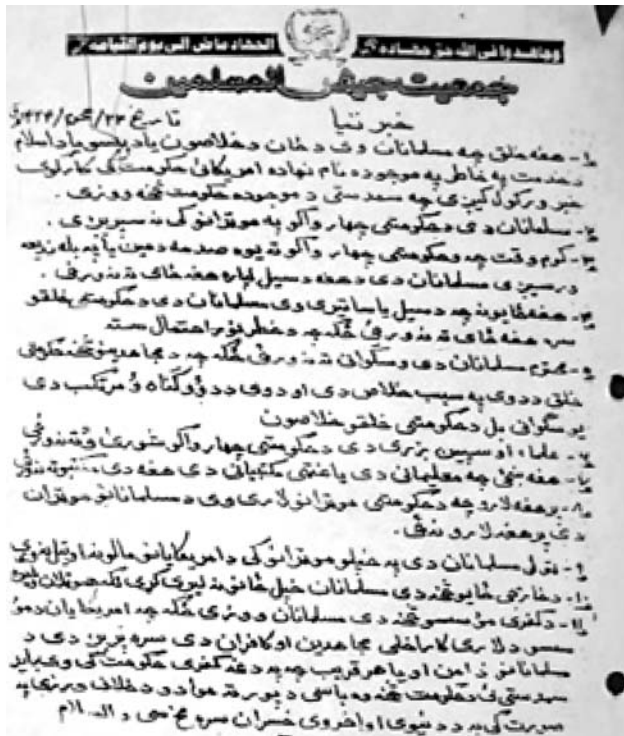 وجاهدوا فی الله حق جهاده الجهاد ماض الی یوم القیامه
جمعیت جیش المسلمین
خبرتیا تاریخ
۱- هغه خلق چه مسلمانان وی دځان دخلاصون یا دپیسو یا داسلام
دخدمت په خاطر په موجوده نام نهاده امریکائی حکومت کی کارکوی
خبر ورکول کیږی چه سمدستی د موجوده حکومت څخه ووزی.
۲- مسلمانان دی دحکومتی چهارواکو په موټرانو کی نه سپریږی.
۳- کوم وقت چه وحکومتی چهارواکو ته یوه صدمه دمین یا په بله ذریعه
ورسیږی مسلمانان دی دهغه دسیل لپاره هغه ځای ته نه ورځی.
۴- هغه ځایونه چه دسیل یا ساتیری وی مسلمانان دی دحکومتی خلقو
سره هغه ځای ته نه ورځی ځکه چه دخطر ډیر احتمال سته
۵- محترم مسلمانان دی وسګوانی ته نه ورځی ځکه چه دمجاهدینو څخه حکومتی
خلق ددوی په سبب خلاص دی او دوی ددې لوګناه مرتکب دی
یو سګوانی بل دحکومتی خلقو خلاصون
۶- علماء او سپین ږیری دی دحکومتی چهارواکو شوری ته نه ورځی
۷- هغه ښځی چه معلمانی دی یا غټی مکتبیانی دی هغه دی مکتبو ته نه ځی
۸- پر هغه لارو چه دحکومتی موټرانو لاری وی دمسلمانانو موټران
دی پر هغه لارو نه ځی.
۹- ټول مسلمانان دی په خپلو موټرانو کی دامریکایانو مالونه او تیل نه وړی
۱۰- دخارجی ځایو څخه دی مسلمانان خپل ځانونه لیری کړی
۱۱- دکفری مؤسسو څخه دی مسلمانان ووزی ځکه چه امریکایان دمؤ
سسو دلاری کار اخلی مجاهدین او کافران دی سره بیرن دی د
مسلمانانو ذامن او یا هر قریب چه په دغه کفری حکومت کی وی باید
سمدستی ئی دحکومت څخه وه باسی د پورته موادو دخلاف ورزی په
صورت کی به د دنیوی او اخروی خسران سره مخ سی والسلام